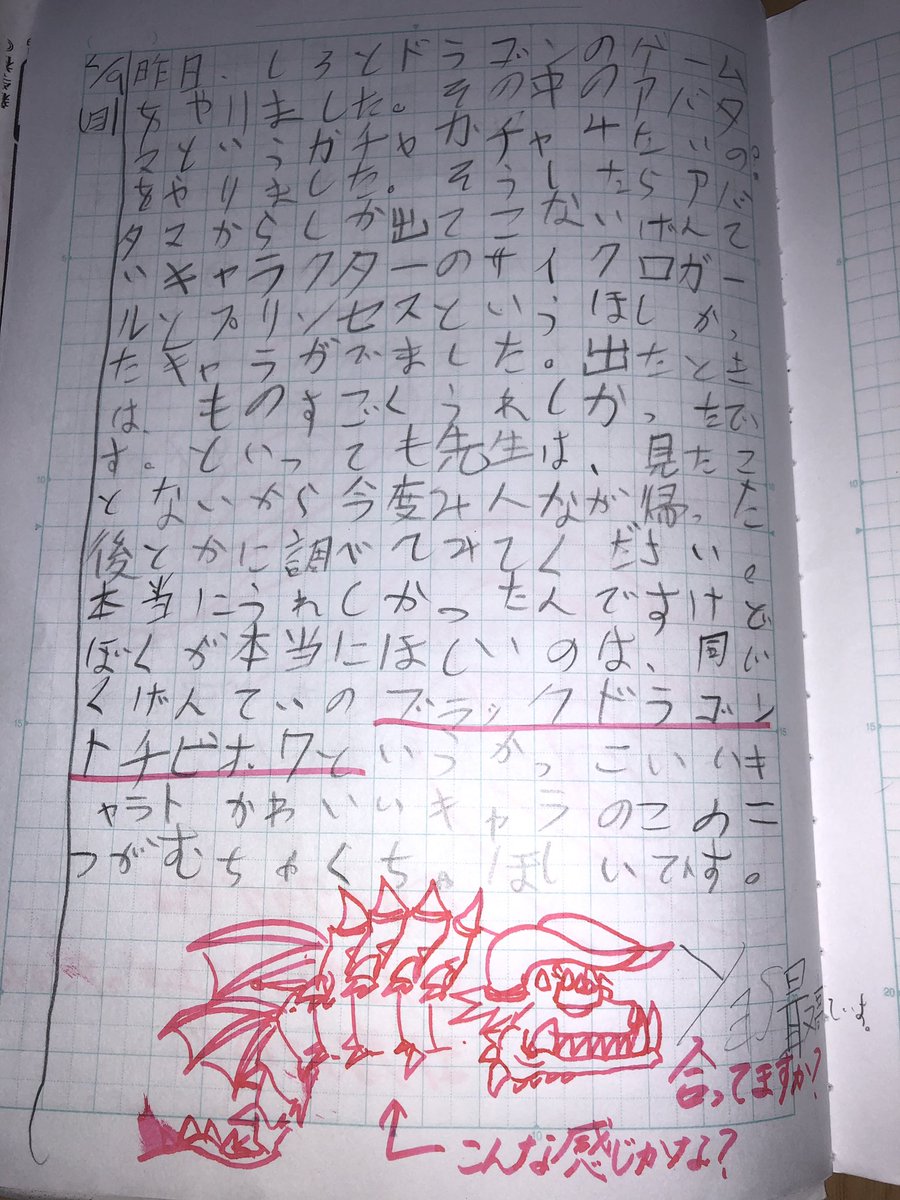 昨日、しろとドラゴンのゲーム
をやりました。その中のアバタ
マというガチャガチャ4たいの
をやりました。そうしたらアバ
タマからしか出てこないげんて
いキャラクターのサイクロガー
ルとプリンセスというほしかっ
たキャラがでました。出たとき
は、ものすごくうれしかったで
す。といっても先生は、見たこ
とないから今度みんなが帰った
後とかに調べてみてください。
本当にうれしかったんですけど
ぼくが本当にほしいのは、同じ
くげんていのブラックドラゴン
トチビホワというかっこいいキ
ャラトかわいいキャラのこの二
つがむちゃくちゃほしいです。
合ってますか?
こんな感じかな?